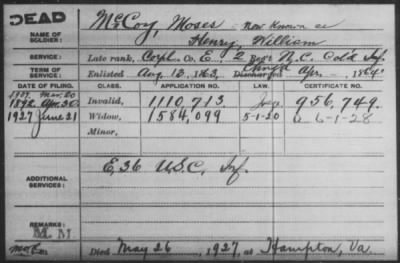 DEAD
NAME OF SOLDIER: McCoy, Moses - now known as
Henry, William
SERVICE: Late rank, Corpl. Co. E, 2 Reg't N.C. Col'd Inf.
TERM OF SERVICE: Enlisted Aug. 12, 1863, Discharged Apr. , 1864
DATE OF FILING. CLASS. APPLICATION NO. LAW. CERTIFICATE NO.
Mar. 20
1892 Apr. 30 Invalid, 1,110,713 956,749
1927 June 21 Widow, 1,584,099 5-1-20 6-1-28
Minor,
ADDITIONAL SERVICES: E, 36 U.S.C. Inf.
REMARKS:
Died May 26, 1927, at Hampton, Va